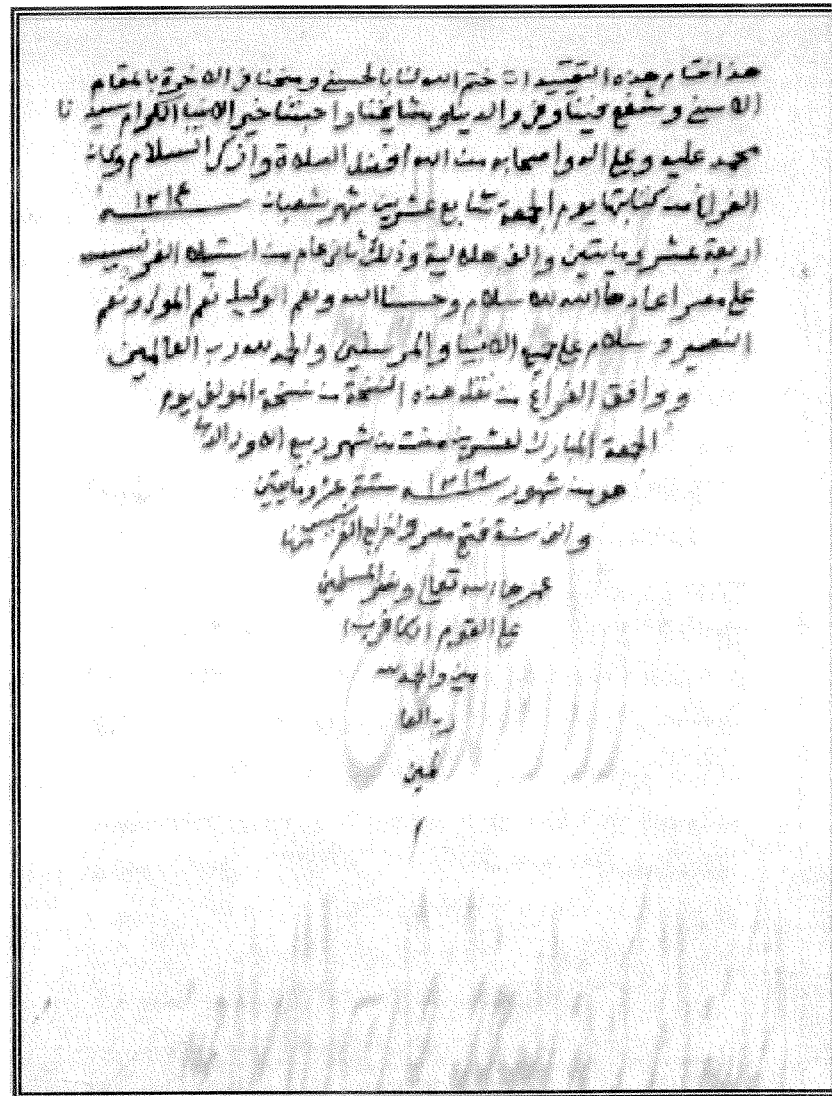 هذا ختام هذه التقييدات ختم الله لنا بالحسنى ومتعنا في الاخرة بالمقام
الاسنى وشفع فينا وفي والدينا ومشايخنا واحبتنا خير الانبيا الكرام سيدنا
محمد عليه وعلى اله واصحابه من الله افضل الصلاة وازكى السلام وكان
الفراغ من كتابتها يوم الجمعة سابع عشرين شهر شعبان ١٢١٤
اربعة عشر ومايتين والف هلالية وذلك ثاني عام من استيلاء الفرنسيس
على مصر اعادها الله للاسلام وحسبنا الله ونعم الوكيل نعم المولى ونعم
النصير وسلام على جميع الانبيا والمرسلين والحمد لله رب العالمين
ووافق الفراغ من نقل هذه النسخة من نسخة المولف يوم
الجمعة المبارك لعشرين مضت من شهر ربيع الاول الذي
هو من شهور ١٢١٦ ستة عشر ومايتين
والف سنة فتح مصر واخراج الفرنسيس منها
عمرها الله تعالى ونصر المسلمين
على القوم الكافرين ا
مين والحمد لله
رب العا
لمين